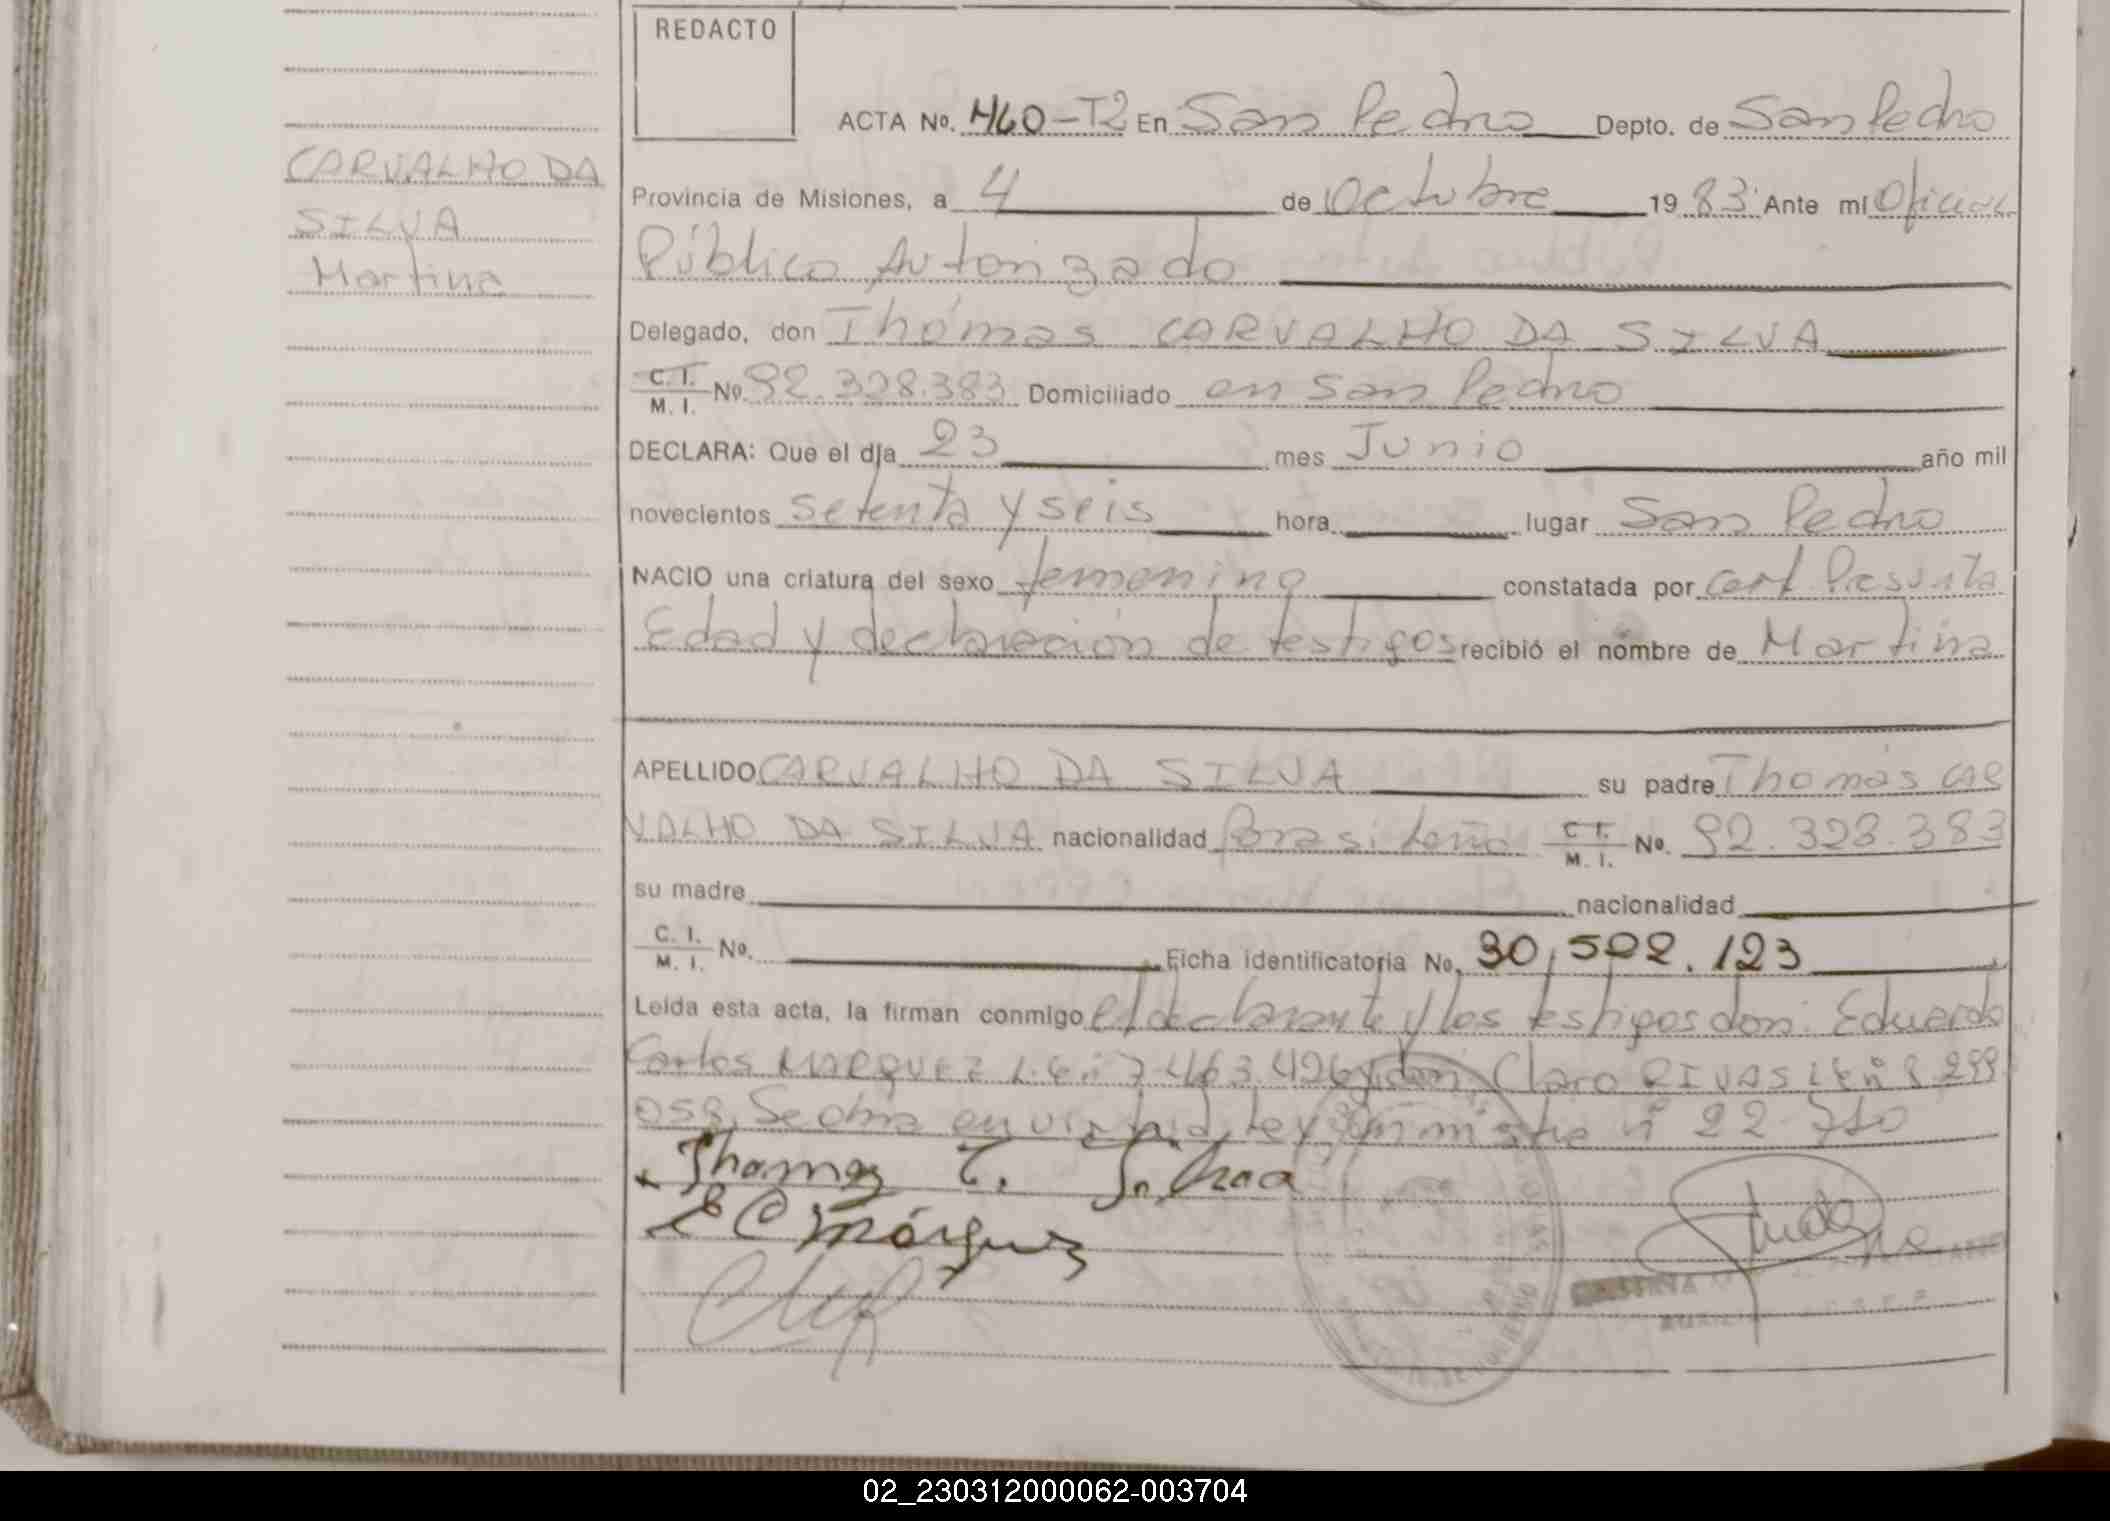 REDACTO
ACTA No. 460-T2 En San Pedro Depto. de San Pedro
CARVALHO DA
SILVA
Martina
Provincia de Misiones, a 4 de Octubre 1983 Ante mí Oficial
Público Autorizado
Delegado, don Thómas CARVALHO DA SILVA
C. I. M. I. No. 92.328.383 Domiciliado en San Pedro
DECLARA: Que el día 23 mes Junio año mil
novecientos setenta y seis hora lugar San Pedro
NACIO una criatura del sexo femenino constatada por Cert Presunta
Edad y declaración de testigos recibió el nombre de Martina
APELLIDO CARVALHO DA SILVA su padre Thómas CAR
VALHO DA SILVA nacionalidad Brasileña C. I. M. I. No. 92.328.383
su madre nacionalidad
C. I. M. I. No. Ficha identificatoria No. 30,502.123
Leída esta acta, la firman conmigo el declarante y los testigos don: Eduardo
Carlos MARQUEZ L.E. nº 7.463.426 y don Claro RIVAS LE nº 8 299
058. Se labra en virtud ley amnistie nº 22.710
Thomaz C. Silvaa
E C Márquez
02_230312000062-003704